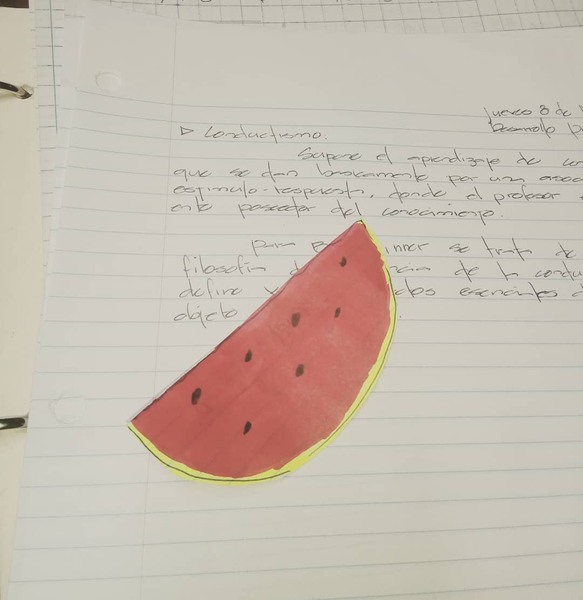 jueves 8 de
Desarrollo
▷ Conductismo.
Supone el aprendizaje de
que se dan básicamente por una
estimulo-respuesta, donde el profesor
ente poseedor del conocimiento.
para se trata de
filosofia de la
define esenciales
objeto